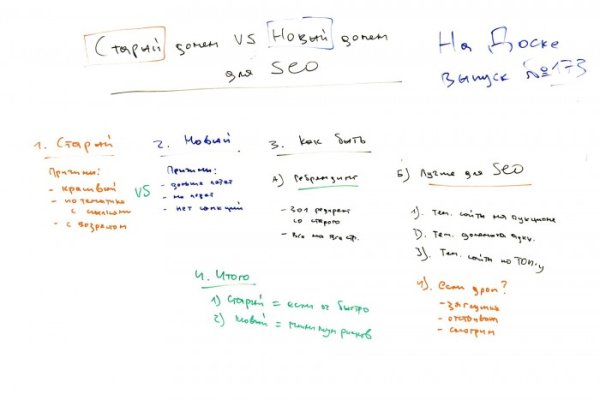 Старый домен VS Новый домен
для SEO
На Доске
выпуск №173
1. Старый
Причины:
- красивый
- по тематике
с ссылками
- с возрастом
VS
2. Новый
Причины:
- дольше
- нет санкций
3. Как быть
А) Ребрендинг
- 301 редирект
со старого
- Все на все стр.
Б) Лучше для SEO
1). Тем. сайты на аукционе
2). Тем. домены аукц.
3). Тем. сайты по ТОП-у
4). Если дроп?
- заглушка
- отстаиваем
- смотрим
4. Итого
1) Старый = если оч быстро
2) Новый = минимум рисков